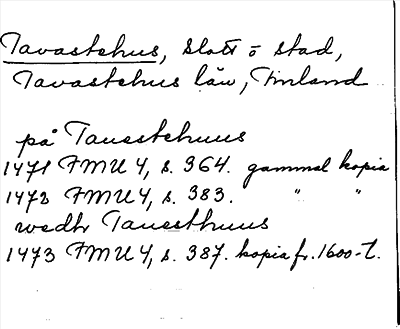 Tavastehus, slott o stad,
Tavastehus län, Finland
på Tauestehuus
1471 FMU 4, s. 364. gammal kopia
1472 FMU 4, s. 383. " "
wedhr Tauesthuus
1473 FMU 4, s. 387. kopia fr. 1600-t.